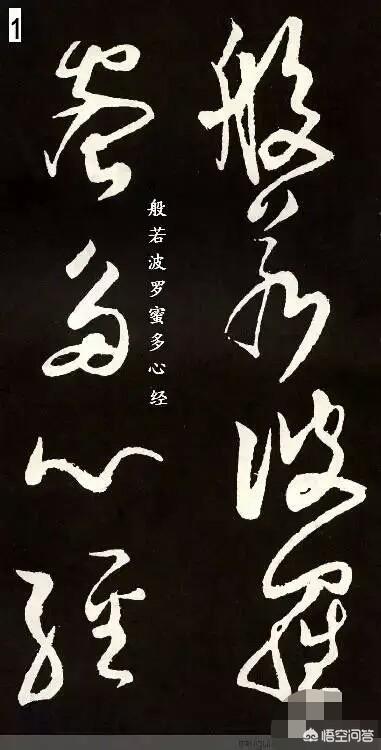 1
般若波羅
蜜多心經
般若波罗蜜多心经
悟空问答